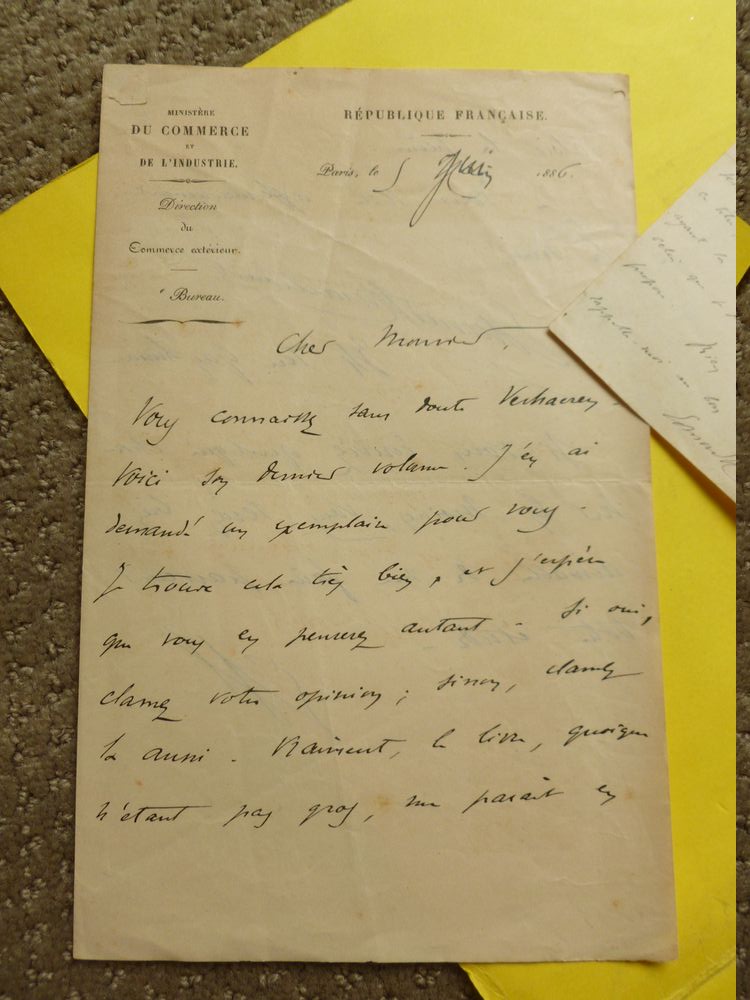 MINISTÈRE
DU COMMERCE
ET
DE L'INDUSTRIE.
Direction
du
Commerce extérieur.
e Bureau.
RÉPUBLIQUE FRANÇAISE.
Paris, le 5 Juin 1886.
Cher Monsieur,
Vous connaissez sans doute Verhaeren.
Voici son dernier volume. J'en ai
demandé un exemplaire pour vous.
Je trouve cela très bien, et j'espère
que vous en penserez autant. Si oui,
clamez votre opinion ; sinon, clamez
la aussi. Vraiment, le livre, quoique
n'étant pas gros, me paraît en
ce
avant la
celui que
propos.
Rien
rappelle-moi au bon